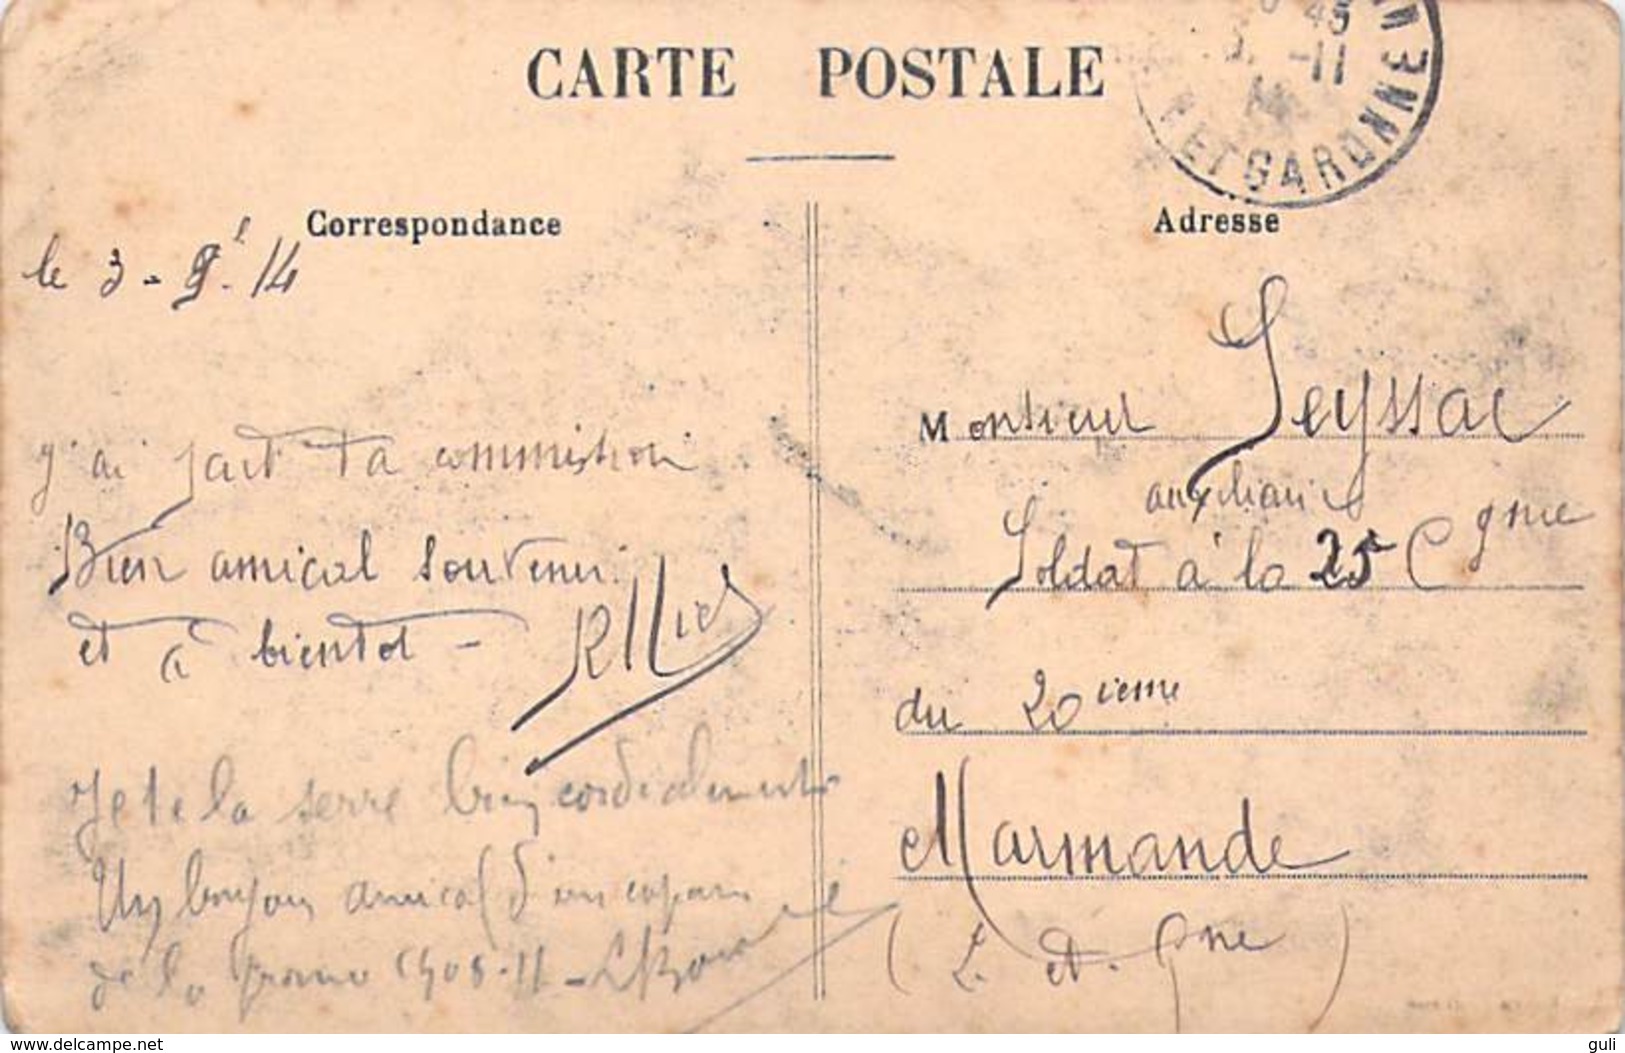 CARTE POSTALE
48
-11
ET GARONNE
Correspondance
Adresse
le 3 - 14
J'ai fait ta commission
Bien amical souvenir
et à bientot -
Je te la serre bien cordialement
Un bonjour amical d'un copain
de la promo 1908-11 -
Monsieur Seyssac
auxiliaire
Soldat à la 25 Cgnie
du 20ieme
Marmande
(L. et. Gne)
delcampe.net
guli